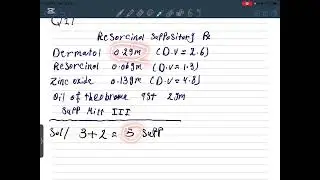 Resorcinol Suppository Rx
Dermatol 0.2gm (D.V = 2.6)
Resorcinol 0.06gm (D.V = 1.3)
Zinc oxide 0.13gm (D.V = 4.8)
Oil of theobroma qst 2gm
Supp Mitt III
Sol/ 3+2 = 5 Supp